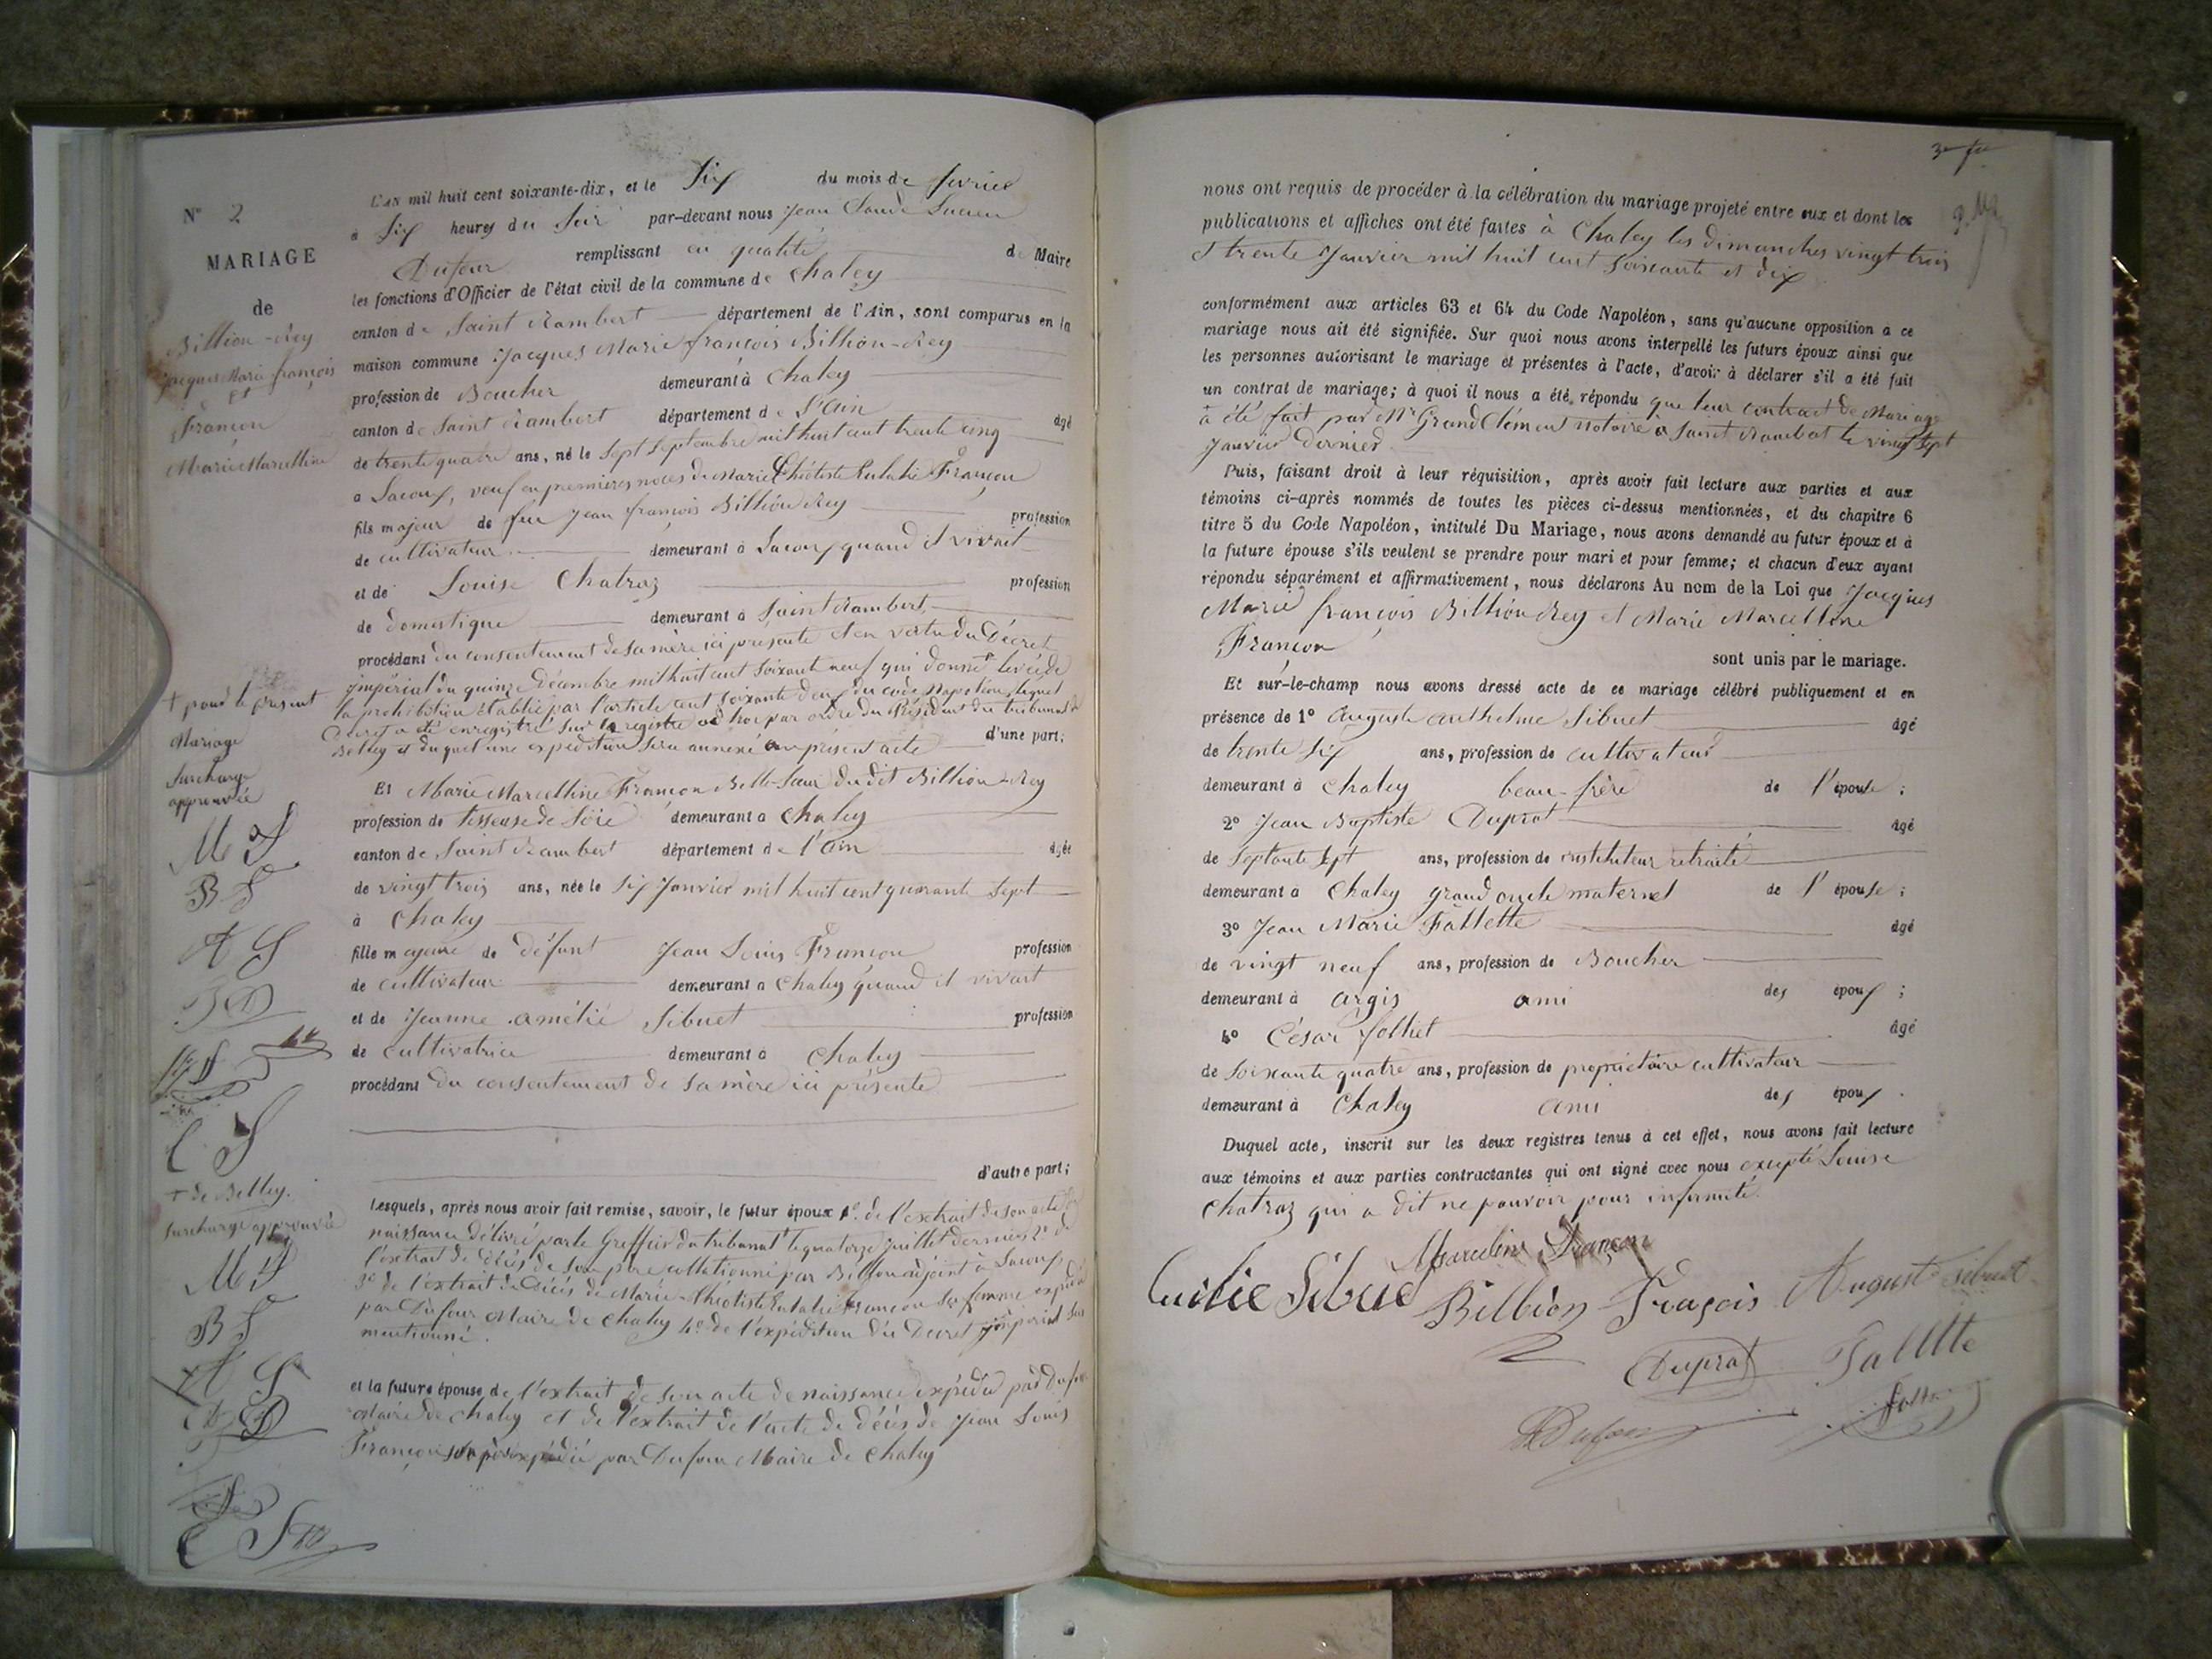 N° 2
MARIAGE
de
Billion-Rey
Jacques Marie françois
et
Françon
Marie Marcelline
L'an mil huit cent soixante-dix, et le Six du mois de fevrier
à Six heures du Soir par-devant nous Jean Claude Lucien
Dufour remplissant en qualité de Maire
les fonctions d'Officier de l'état civil de la commune de Chaley
canton de Saint Rambert département de l'Ain, sont comparus en la
maison commune Jacques Marie françois Billion-Rey
profession de Boucher demeurant à Chaley
canton de Saint Rambert département de l'Ain âgé
de trente quatre ans, né le Sept Septembre mil huit cent trente cinq
a Lacoux, veuf en premieres noces de Marie Théotiste Eulalie Françon
fils majeur de feu Jean françois Billion Rey profession
de cultivateur demeurant à Lacoux quand il vivait
et de Louise Chatraz profession
de domestique demeurant à Saint Rambert
procédant du consentement de sa mère ici presente et en vertu du Décret
impérial du quinze Décembre mil huit cent soixante neuf qui donne + levée de
la prohibition établie par l'article cent soixante deux du code Napoléon, lequel
Décret a été enregistré sur le registre ad hoc par ordre du Président du tribunal de
Belley et duquel une expedition sera annexé au présent acte d'une part;
+ pour le present
Mariage
Surcharge
approuvée
M F
B F
A S
J D
C F
Et Marie Marcelline Françon Belle-Sœur du dit Billion-Rey
profession de tisseuse de Soie demeurant à Chaley
canton de Saint Rambert département de l'Ain âgée
de vingt trois ans, née le Six Janvier mil huit cent quarante Sept
à Chaley
fille majeure de défunt Jean Louis Françon profession
de cultivateur demeurant à Chaley quand il vivait
et de Jeanne Amélie Sibuet profession
de cultivatrice demeurant à Chaley
procédant du consentement de sa mère ici présente
d'autre part;
+ de Belley.
Surcharge approuvée
M F
B F
A S
D
Lesquels, après nous avoir fait remise, savoir, le futur époux 1° de l'extrait de son acte de
naissance délivré par le Greffier du tribunal + le quatorze Juillet dernier 2° de
l'extrait de décès de son père collationné par Billion adjoint à Lacoux
3° de l'extrait de décès de Marie-Théotiste Eulalie Françon sa femme expédié
par Dufour Maire de Chaley 4° de l'expédition du Decret impérial sus
mentionné.
et la future épouse de l'extrait de son acte de naissance expédié par Dufour
Maire de Chaley et de l'extrait de l'acte de décès de Jean Louis
Françon son père expédié par Dufour Maire de Chaley
nous ont requis de procéder à la célébration du mariage projeté entre eux et dont les
publications et affiches ont été faites à Chaley les dimanches vingt trois
et trente Janvier mil huit cent soixante et dix
conformément aux articles 63 et 64 du Code Napoléon, sans qu'aucune opposition à ce
mariage nous ait été signifiée. Sur quoi nous avons interpellé les futurs époux ainsi que
les personnes autorisant le mariage et présentes à l'acte, d'avoir à déclarer s'il a été fait
un contrat de mariage; à quoi il nous a été répondu que leur contract de Mariage
a été fait par Mr Grand Clément notaire à Saint Rambert le vingt Sept
Janvier dernier
Puis, faisant droit à leur réquisition, après avoir fait lecture aux parties et aux
témoins ci-après nommés de toutes les pièces ci-dessus mentionnées, et du chapitre 6
titre 5 du Code Napoléon, intitulé Du Mariage, nous avons demandé au futur époux et à
la future épouse s'ils veulent se prendre pour mari et pour femme; et chacun d'eux ayant
répondu séparément et affirmativement, nous déclarons Au nom de la Loi que Jacques
Marie françois Billion Rey et Marie Marcelline
Françon sont unis par le mariage.
Et sur-le-champ nous avons dressé acte de ce mariage célébré publiquement et en
présence de 1° Auguste Anthelme Sibuet âgé
de trente six ans, profession de cultivateur
demeurant à Chaley beau-frère de l'épouse;
2° Jean Baptiste Duprat âgé
de Septante Sept ans, profession de instituteur retraité
demeurant à Chaley grand oncle maternel de l'épouse;
3° Jean Marie Fallette âgé
de vingt neuf ans, profession de Boucher
demeurant à Argis ami des époux;
4° César folliet âgé
de Soixante quatre ans, profession de propriétaire cultivateur
demeurant à Chaley ami des époux.
Duquel acte, inscrit sur les deux registres tenus à cet effet, nous avons fait lecture
aux témoins et aux parties contractantes qui ont signé avec nous excepté Louise
Chatraz qui a dit ne pouvoir pour infirmité.
Marceline Françon
Sibue Billion François August Sibuet
Duprat Fallette
Dufour